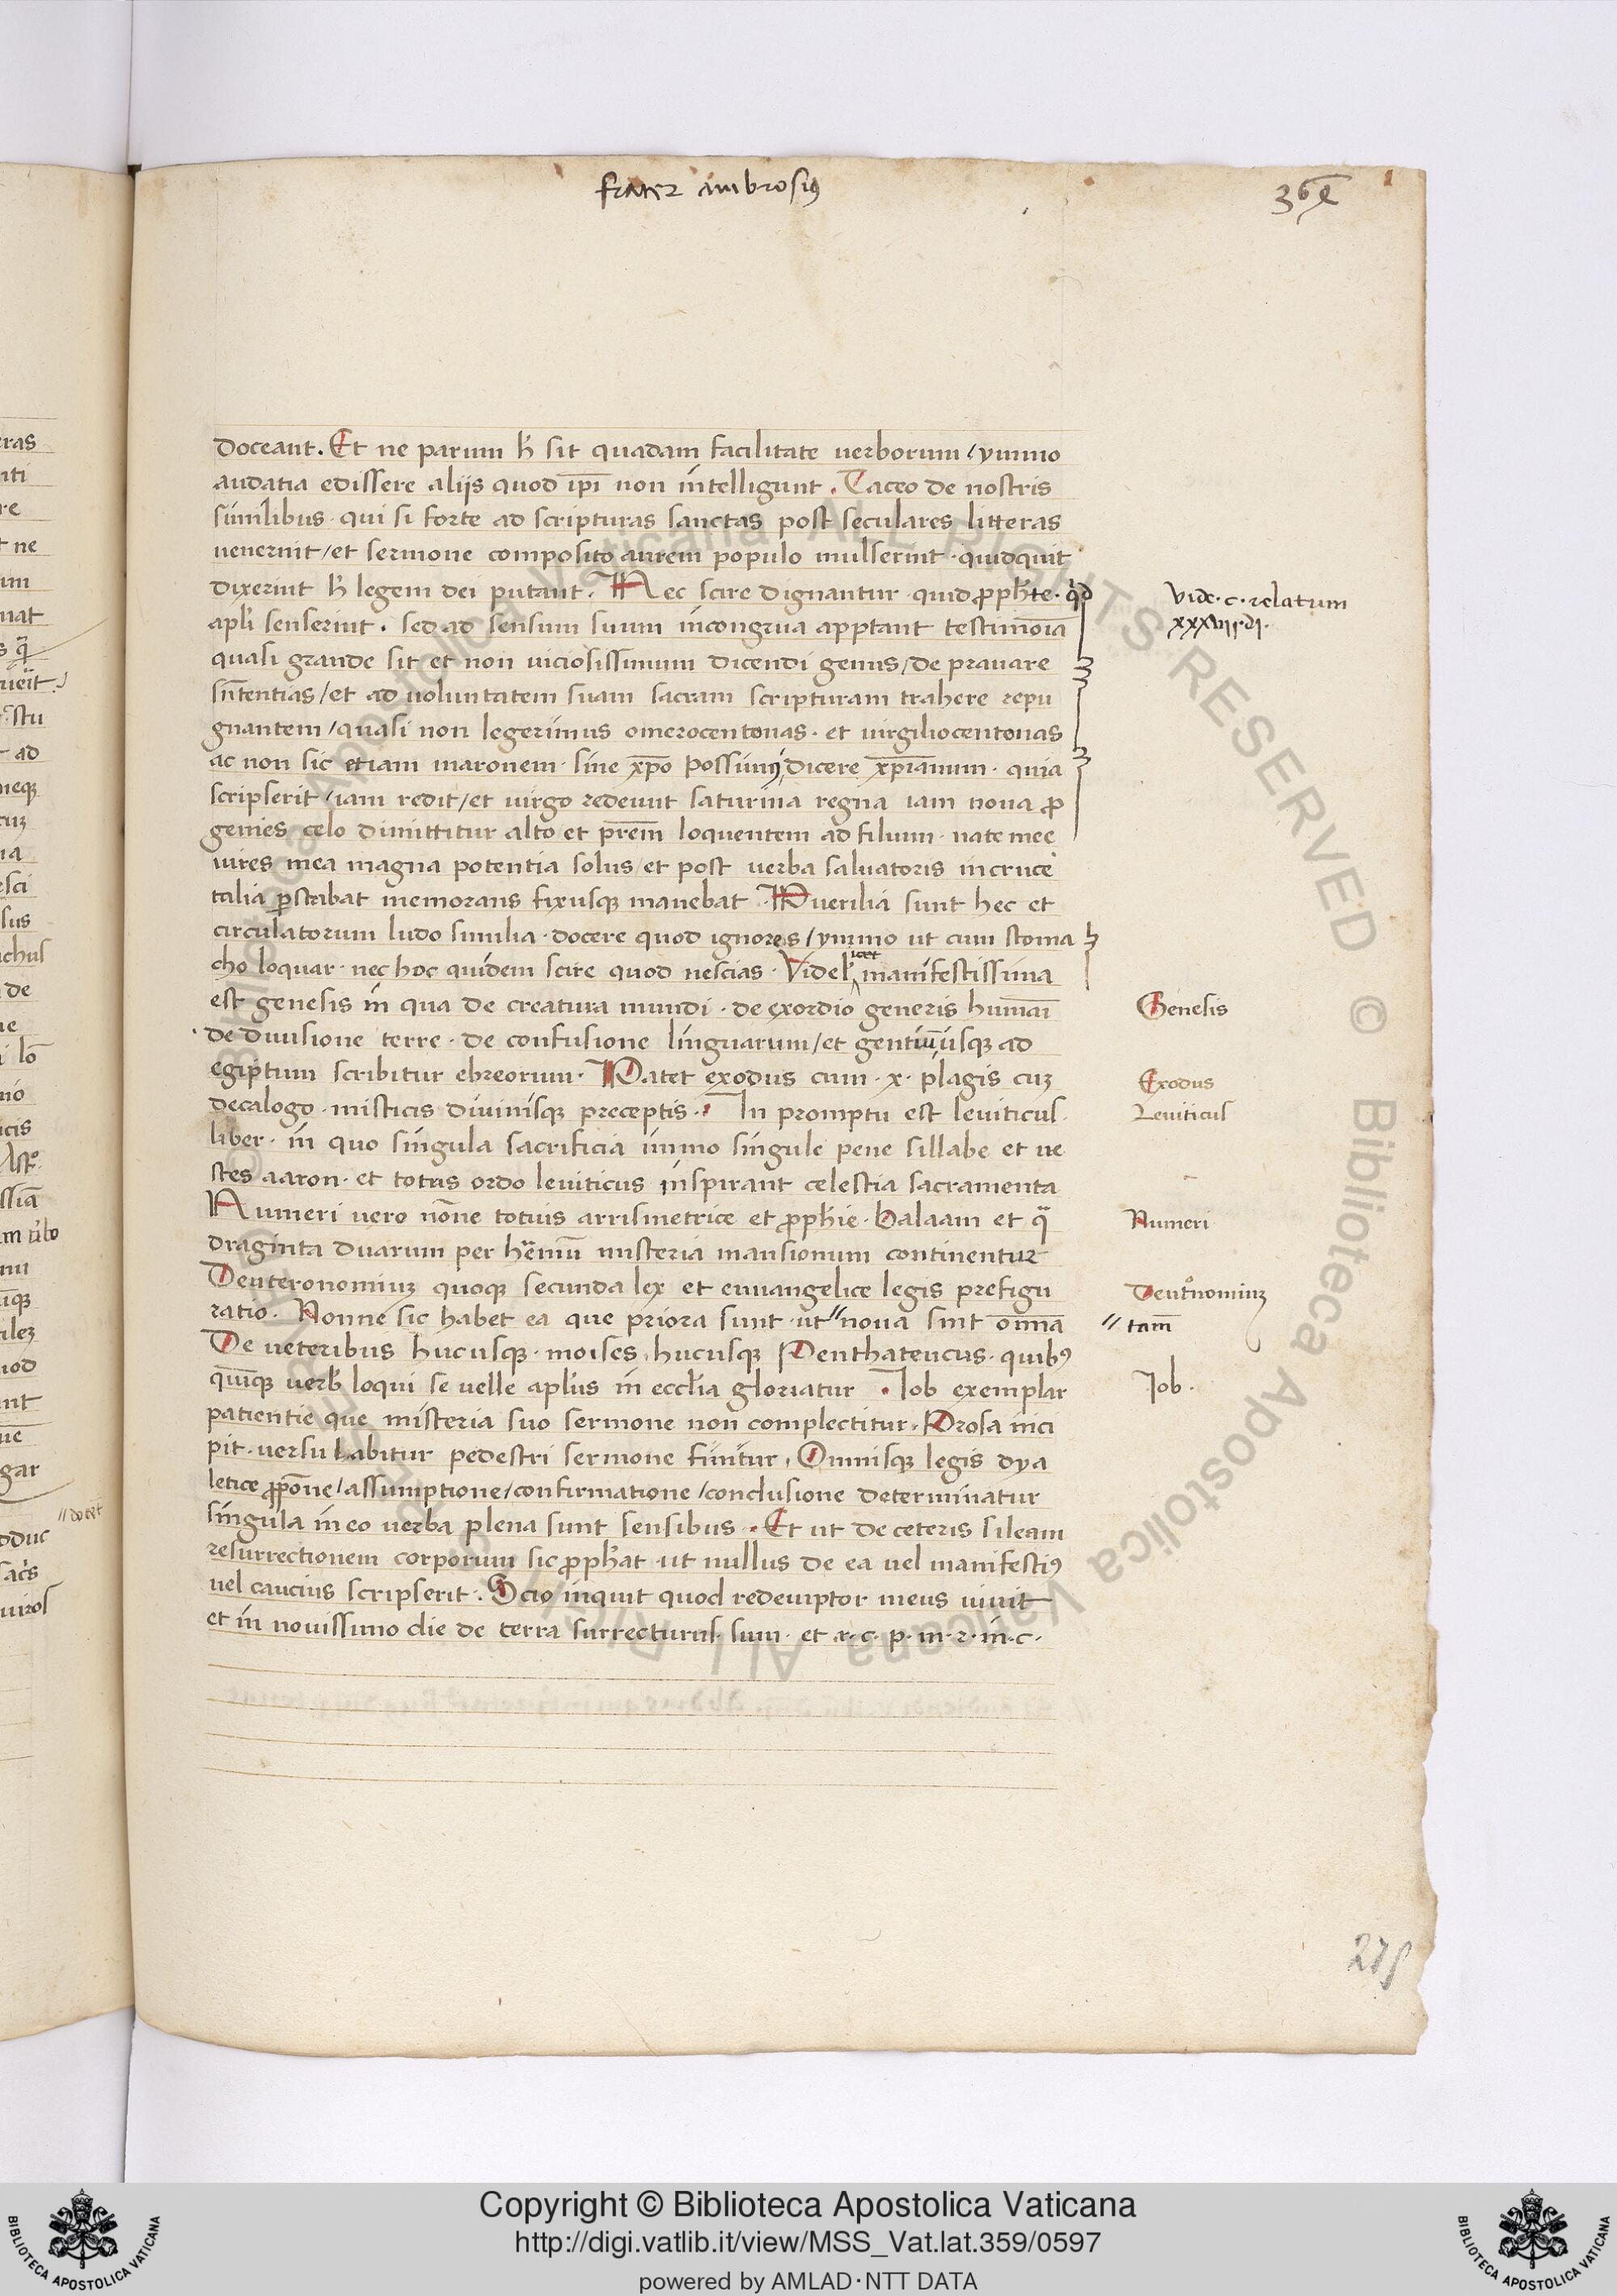 frater ambrosiꝰ
doceant. Et ne parum h̄ sit quadam facilitate uerborum / ymmo
audatia edissere alijs quod ip̄i non intelligunt. Taceo de nostris
similibus · qui si forte ad scripturas sanctas post seculares litteras
uenerint / et sermone composito aurem populo mulserint · quidquit
dixerint h̄ legem dei putant. Nec scire dignantur · quid ꝓph̄te · qd
apl̄i senserint · sed ad sensum suum incongrua apptant testimōia
quasi grande sit et non uiciosissimum dicendi genus / de prauare
sn̄tentias / et ad uoluntatem suam sacram scripturam trahere repu
gnantem / quasi non legerimus omerocentonas · et uirgiliocentonas
ac non sic etiam maronem · sine xp̄o possimꝰ dicere xp̄ianum · quia
scripserit / iam redit / et uirgo redeunt saturnia regna iam noua ꝓ
genies celo dimittitur alto et pr̄em loquentem ad filium · nate mee
uires mea magna potentia solus / et post uerba saluatoris in cruce
talia ꝑstabat memorans fixusqꝫ manebat · Puerilia sunt hec et
circulatorum ludo similia · docere quod ignores / ymmo ut cum stoma
cho loquar · nec hoc quidem scire quod nescias · Videl icet manifestissima
est genesis in qua de creatura mundi · de exordio generis humāi
de diuisione terre · de confusione linguarum / et gentiū usqꝫ ad
egiptum scribitur ebreorum · Patet exodus cum · x · plagis cuꝫ
decalogo · misticis diuinisqꝫ preceptis · In promptu est leuiticus
liber · in quo singula sacrificia immo singule pene sillabe et ue
stes aaron · et totus ordo leuiticus inspirant celestia sacramenta
Numeri uero nōne totius arrismetrice et ꝓph̄ie · balaam et q̄
draginta duarum per h̄emū misteria mansionum continentur
Deuteronomiuꝫ quoqꝫ secunda lex et euuangelice legis prefigu
ratio · Nonne sic habet ea que priora sunt · ut // noua sint om̄ia
De ueteribus hucusqꝫ · moises hucusqꝫ Penthateucus · quibꝰ
quīqꝫ uerb̄ loqui se uelle apl̄us in eccl̄ia gloriatur · Iob exemplar
patientie que misteria suo sermone non complectitur · Prosa inci
pit · uersu labitur pedestri sermone finitur · Omnisqꝫ legis dya
letice ꝓpōne / assumptione / confirmatione / conclusione determinatur
singula in eo uerba plena sunt sensibus · Et ut de ceteris sileam
resurrectionem corporum sic ꝓph̄at · ut nullus de ea uel manifestiꝰ
uel caucius scripserit · Scio inquit quod redemptor meus uiuit
et in nouissimo die de terra surrecturus sum · et r · c · p · m · 2 · in · c ·
Vide · c · relatum
xxxvii · di ·
Genesis
Exodus
Leuiticus
Numeri
Deut̄nomiuꝫ
// tam̄
Iob ·
Copyright © Biblioteca Apostolica Vaticana
http://digi.vatlib.it/view/MSS_Vat.lat.359/0597
powered by AMLAD·NTT DATA
BIBLIOTECA APOSTOLICA VATICANA
BIBLIOTECA APOSTOLICA VATICANA